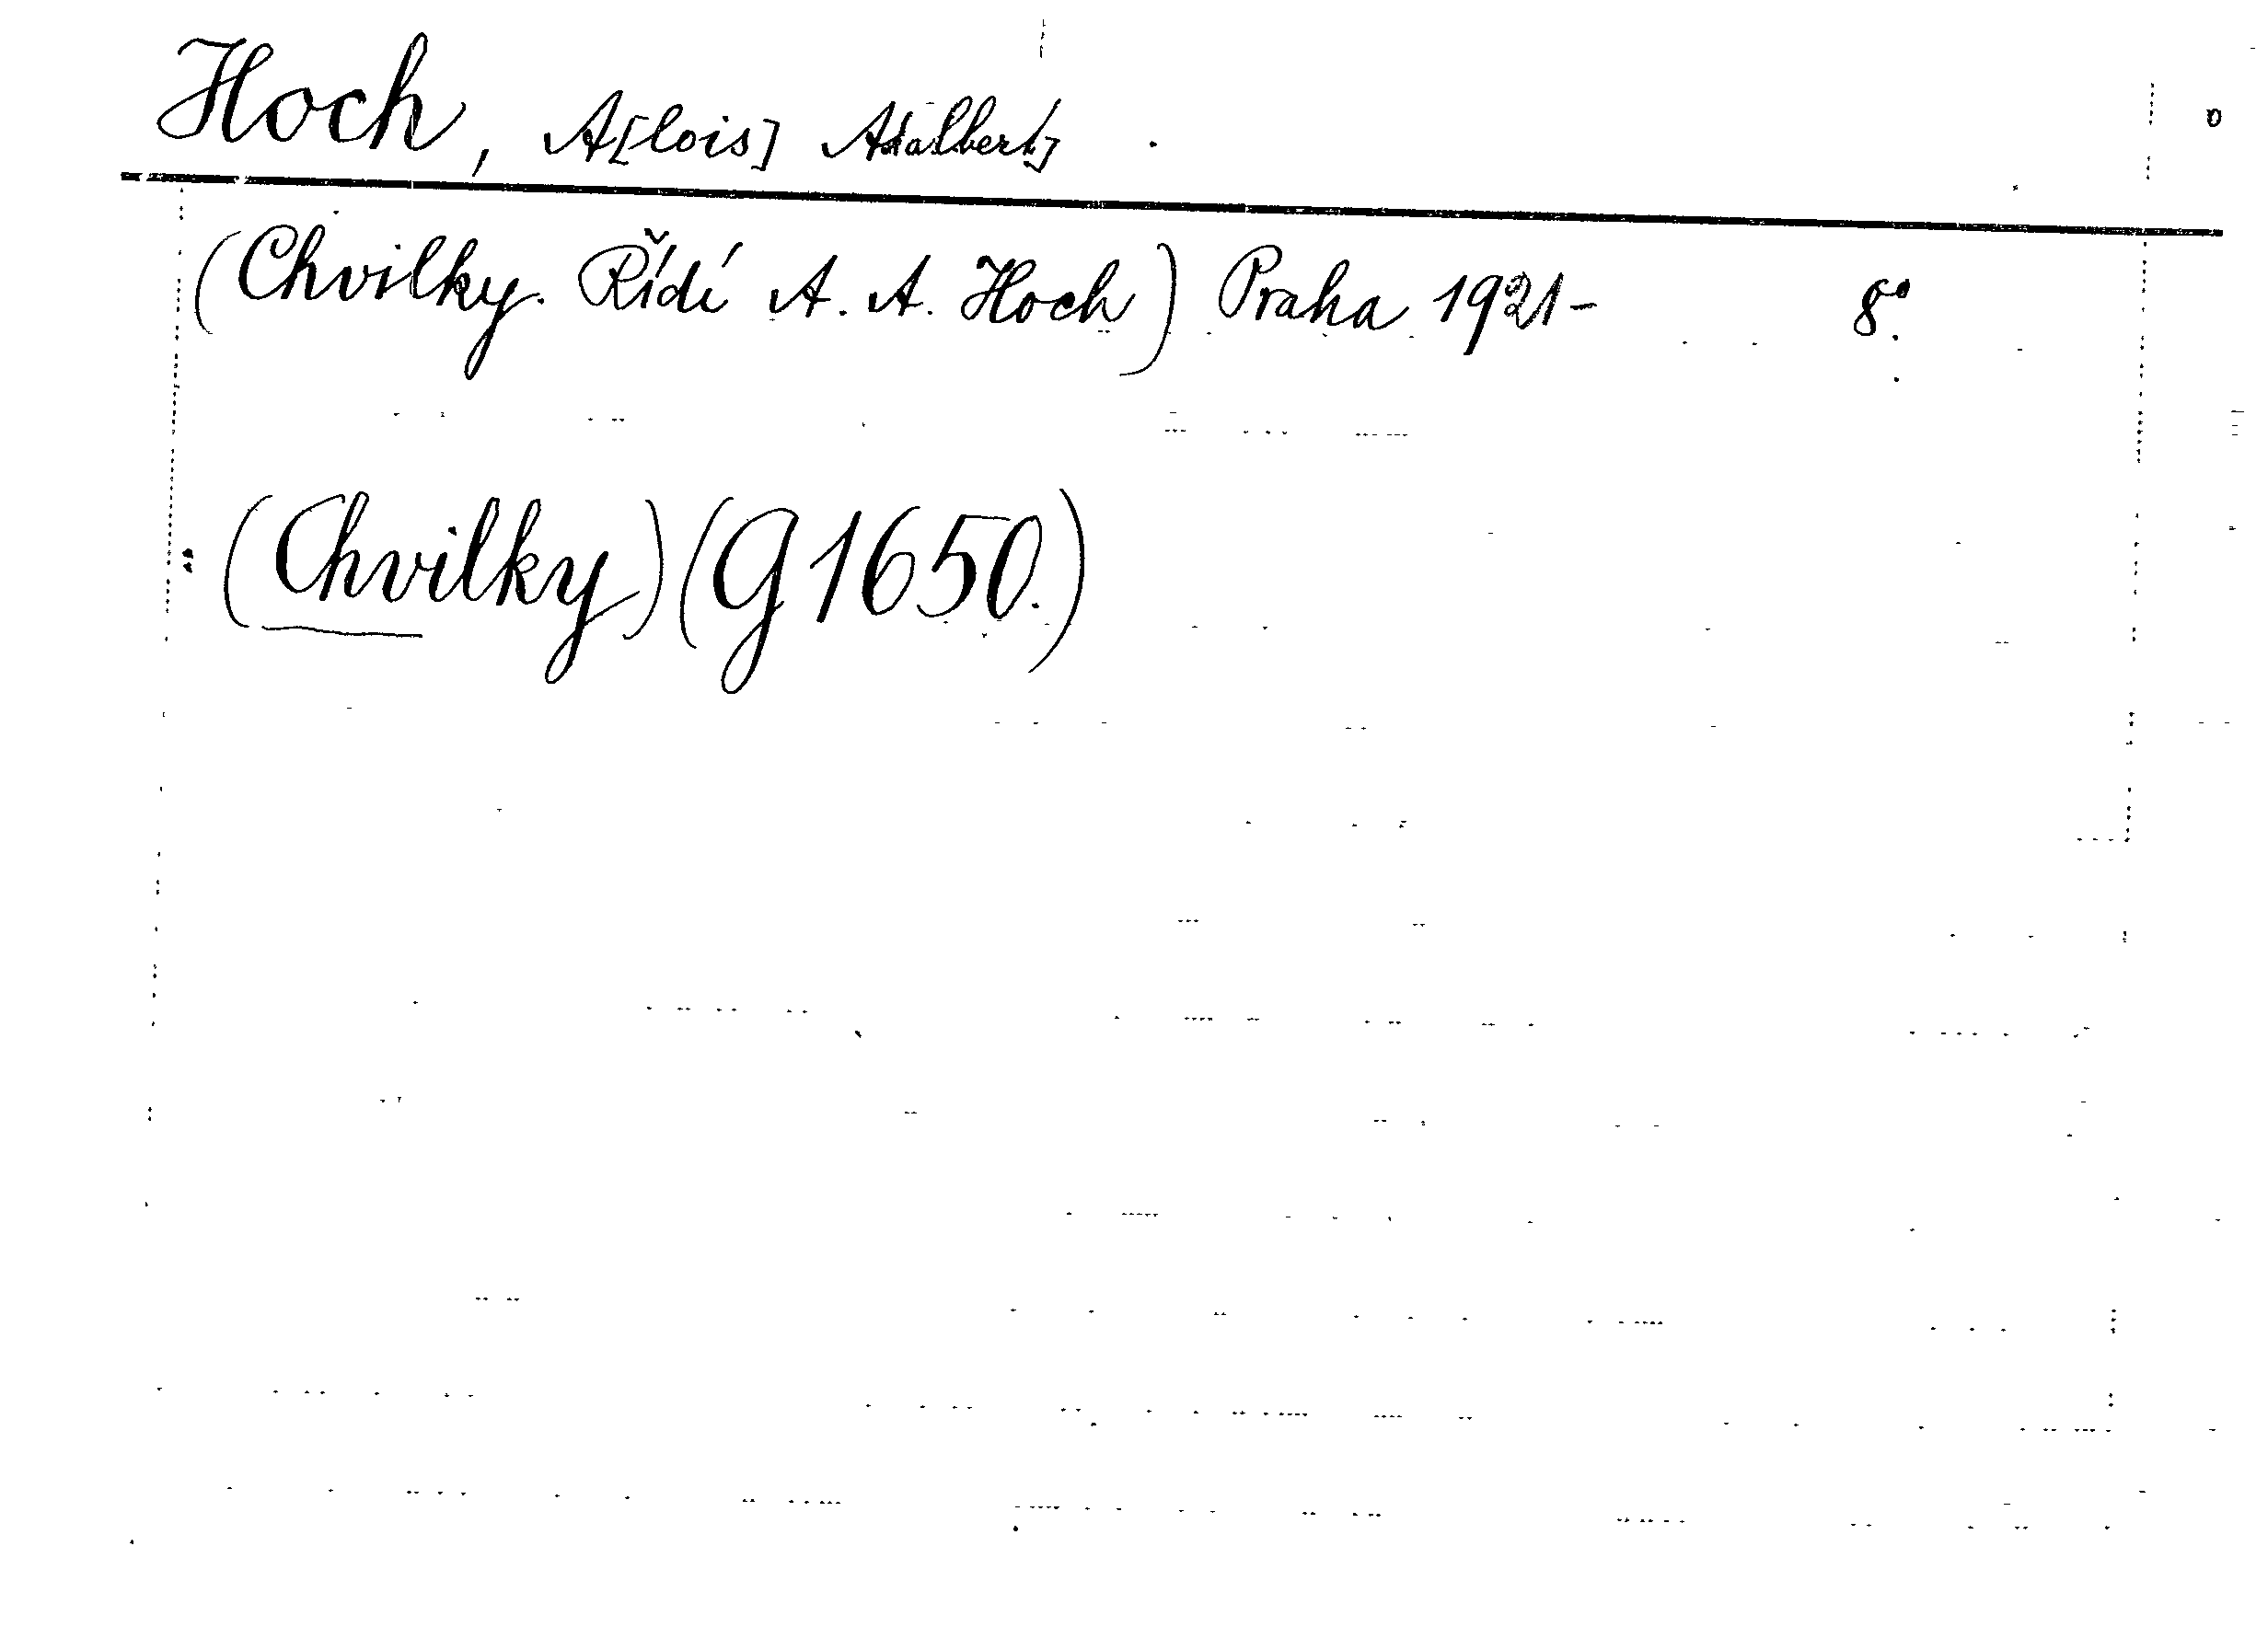 Hoch, A[lois] A[dalbert]
(Chvilky. Řídí A. A. Hoch) Praha 1921- 8°.
(Chvilky) (G 1650.)